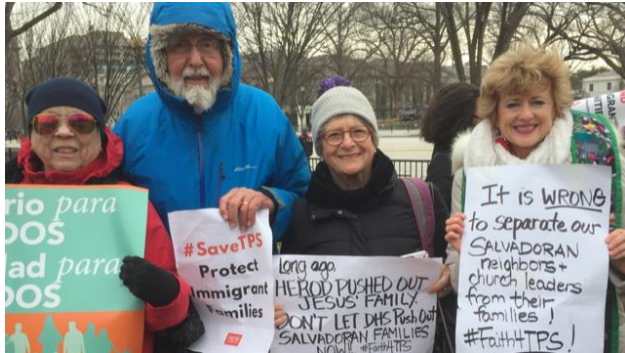 rio para
DOS
dad para
DOS
#SaveTPS
Protect
Immigrant
Families
Long ago,
HEROD PUSHED OUT
JESUS' FAMILY.
DON'T LET DHS PUSH OUT
SALVADORAN FAMILIES
NOW!
#Faith4TPS
IT is WRONG
to separate our
SALVADORAN
neighbors +
church leaders
from their
families!
#Faith4TPS!